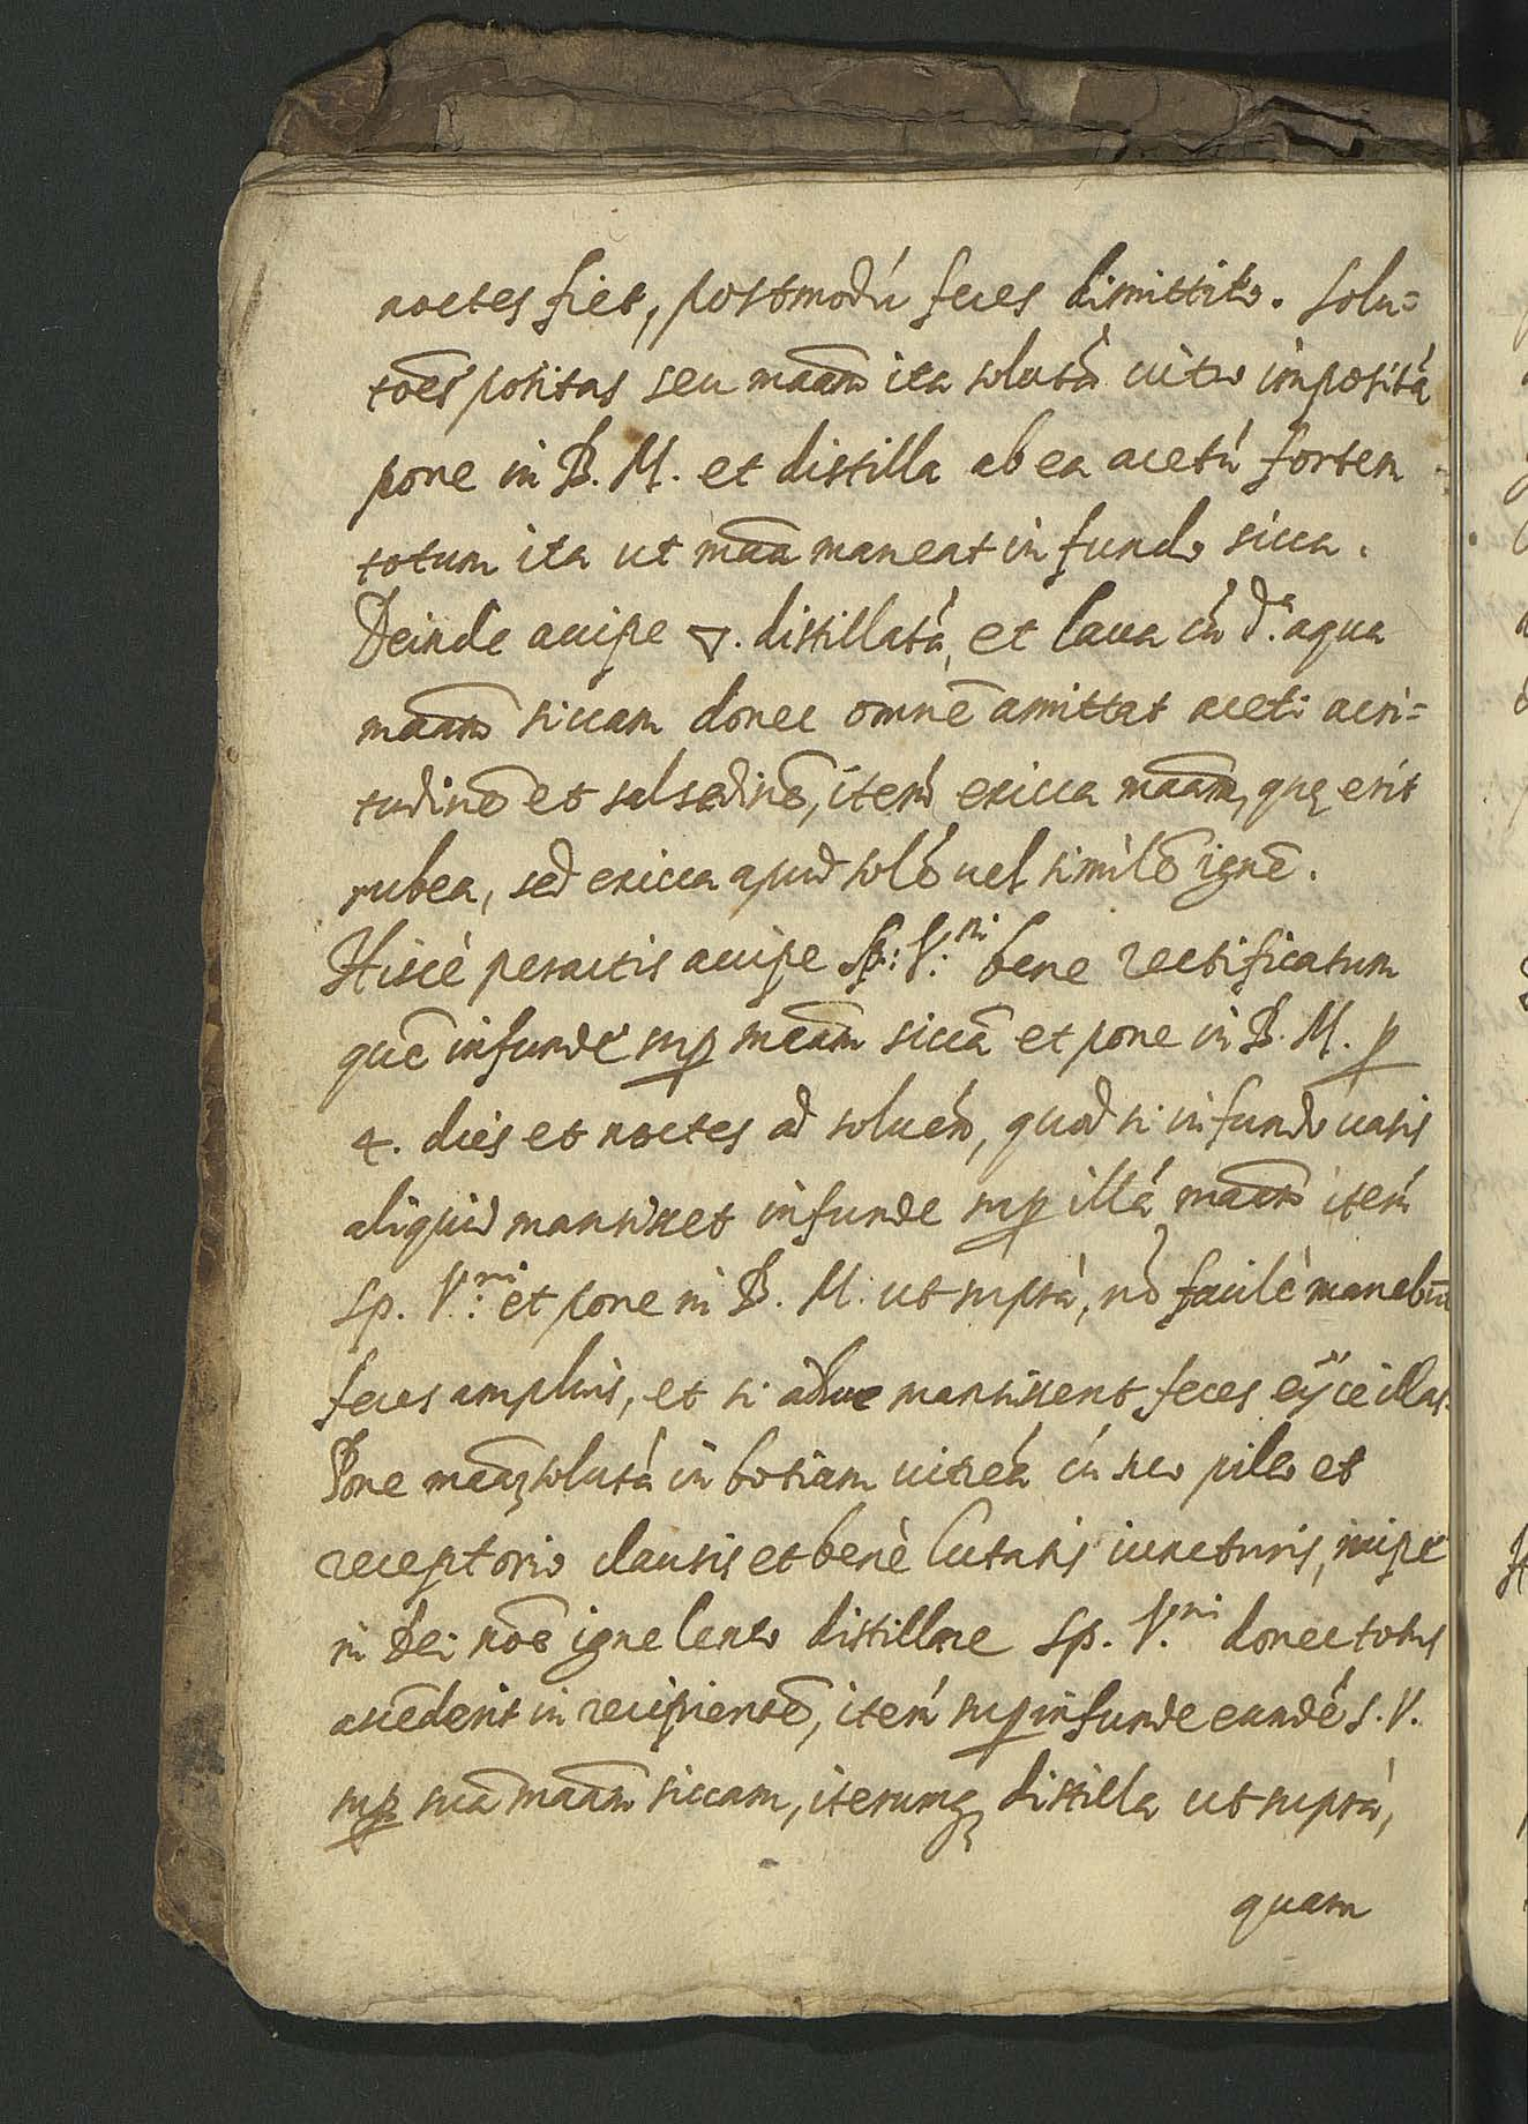 noctes fiet, postmodú feces dimittito. Solu=
tōes positas seu maām ita solutá uitro impositá
pone in B. M. et distilla ab ea acetú fortem
totum ita ut māa maneat in fundo sicca.
Deinde accipe 🜄. distillatá, et laua cú d.ᵃ aqua
maām siccam donec omnē amittat aceti acri=
tudinē et salsedinē, iterú exicca maām, quę erit
rubea, sed exicca apud solé uel similē ignē.
Hiscè peractis accipe Sp: V:ⁿⁱ bene rectificatum
quē infunde sup maām siccā et pone in B. M. p
4. dies et noctes ad soluéd, quod si in fundo uasis
aliquid mansisset infunde sup illá maām iterú
Sp. V.ⁿⁱ et pone in B. M. ut suprà, nō facilè manebūt
feces amplius, et si adhuc mansissent feces eijce illas.
Pone maāz solutá in botiam uitreá cú suo pileo et
receptorio clausis et benè lutatis iuncturis, incipe
in Dei nōe igne lento distillare Sp. V.ⁿⁱ donec totus
ascēderit in recipientē, iterú sup infunde eundé S. V.
sup suā maām siccam, iterumq; distilla ut suprà,
quam